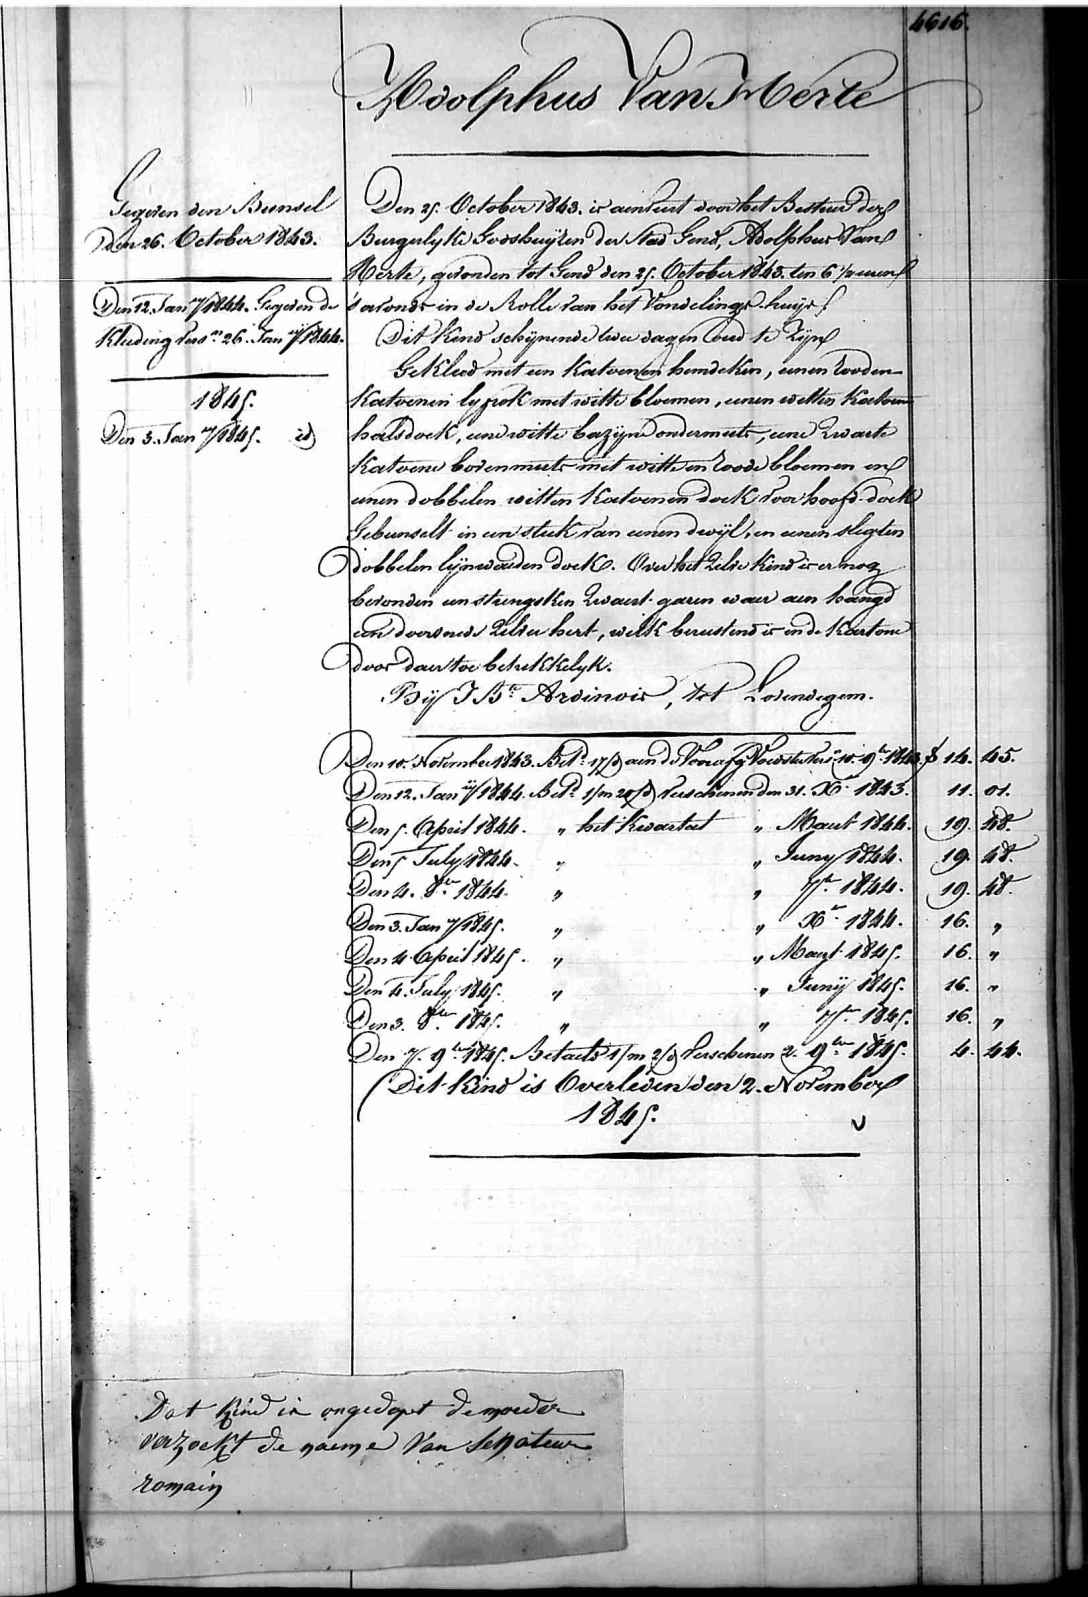 4616.
Adolphus Van Merte
Gegeven den Bunsel
den 26. October 1843.
Den 12. Jan.ry 1844. Gegeven de
Kleding vers.n 26. Jan.ry 1844.
1845.
Den 3. Jan.ry 1845. id
Den 25. October 1843. is aenveert door het Bestuer der
Burgerlyke Godshuyzen der Stad Gend, Adolphus Van
Merte, gevonden tot Gend den 25. October 1843. ten 6 1/2 uren
's avonds in de Rolle van het Vondelings-huys.
Dit Kind schynende twee dagen oud te zyn
Gekleed met een Katoenen hemdeken, eenen rooden
Katoenen lyfrok met witte bloemen, eenen witten Katoenen
halsdoek, eene witte bazyne ondermuts, eene zwarte
Katoene bovenmuts met witte en roode bloemen en
eenen dobbelen witten Katoenen doek voor hoofd-doek
Gebunselt in een stuk van eenen dwyl, en eenen slegten
dobbelen lynwaeden doek. Over het zelve Kind is er nog
bevonden een strengsken zwart garen waer aen hangd
een doorsnede zilver hert, welk berustend is in de Kartone
doos daer toe betrekkelyk.
By J. B.te Ardinois, tot Lovendegem.
Den 10. November 1843. Bet.d 17/d aen de Vooraf 10. 9.ber 1843. f 14. 45.
Den 12. Jan.ry 1844. Bet.d 1/m 20/d verschenen den 31. X.r 1843. 11. 01.
Den 5. April 1844. " het Kwartael " Maert 1844. 19. 48.
Den 5 July 1844. " " Juny 1844. 19. 48.
Den 4. 8.ber 1844. " " 7.ber 1844. 19. 48.
Den 3. Jan.ry 1845. " " X.r 1844. 16. "
Den 4 April 1845. " " Maert 1845. 16. "
Den 4. July 1845. " " Juny 1845. 16. "
Den 3. 8.ber 1845. " " 7.ber 1845. 16. "
Den 7. 9.ber 1845. Betaeld 1/m 2/d verschenen 2. 9.ber 1845. 4. 44.
Dit Kind is Overleden den 2. November
1845.
Dat Kind is ongedopt de moeder
verzoekt de naeme van senateur
romain